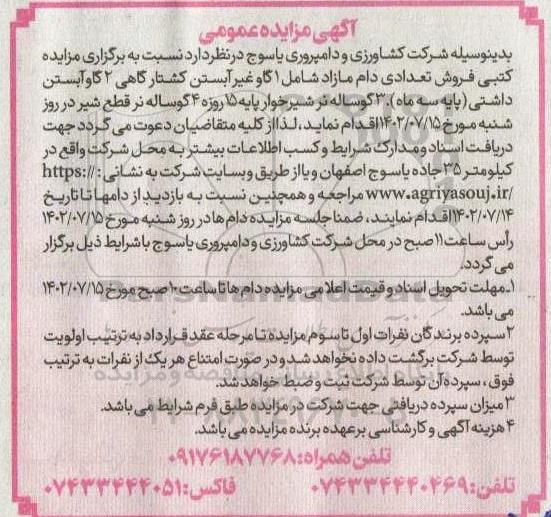 آگهی مزایده عمومی
بدینوسیله شرکت کشاورزی و دامپروری یاسوج در نظر دارد نسبت به برگزاری مزایده
کتبی فروش تعدادی دام مازاد شامل ۱ گاو غیر آبستن کشتار گاهی ۲ گاو آبستن
داشتی (پایه سه ماه) ۳ گوساله نر شیرخوار پایه ۱۵ روزه ۴ گوساله نر قطع شیر در روز
شنبه مورخ ۱۴۰۲/۰۷/۱۵ اقدام نماید، لذا از کلیه متقاضیان دعوت می گردد جهت
دریافت اسناد و مدارک شرایط و کسب اطلاعات بیشتر به محل شرکت واقع در
کیلومتر ۳۵ جاده یاسوج اصفهان و یا از طریق وبسایت شرکت به نشانی : https://
www.agriyasouj.ir/ مراجعه و همچنین نسبت به بازدید از دامها تا تاریخ
۱۴۰۲/۰۷/۱۴ اقدام نمایند، ضمنا جلسه مزایده دام ها در روز شنبه مورخ ۱۴۰۲/۰۷/۱۵
رأس ساعت ۱۱ صبح در محل شرکت کشاورزی و دامپروری یاسوج با شرایط ذیل برگزار
می گردد.
۱ـ مهلت تحویل اسناد و قیمت اعلامی مزایده دام ها تا ساعت ۱۰ صبح مورخ ۱۴۰۲/۰۷/۱۵
می باشد.
۲ سپرده برندگان نفرات اول تا سوم مزایده تا مرحله عقد قرارداد به ترتیب اولویت
توسط شرکت برگشت داده نخواهد شد و در صورت امتناع هر یک از نفرات به ترتیب
فوق، سپرده آن توسط شرکت ثبت و ضبط خواهد شد.
۳ میزان سپرده دریافتی جهت شرکت در مزایده طبق فرم شرایط می باشد.
۴ هزینه آگهی و کارشناسی بر عهده برنده مزایده می باشد.
تلفن همراه: ۰۹۱۷۶۱۸۷۷۶۸
تلفن: ۰۷۴۳۳۴۴۴۰۴۶۹ فاکس: ۰۷۴۳۳۴۴۴۰۵۱